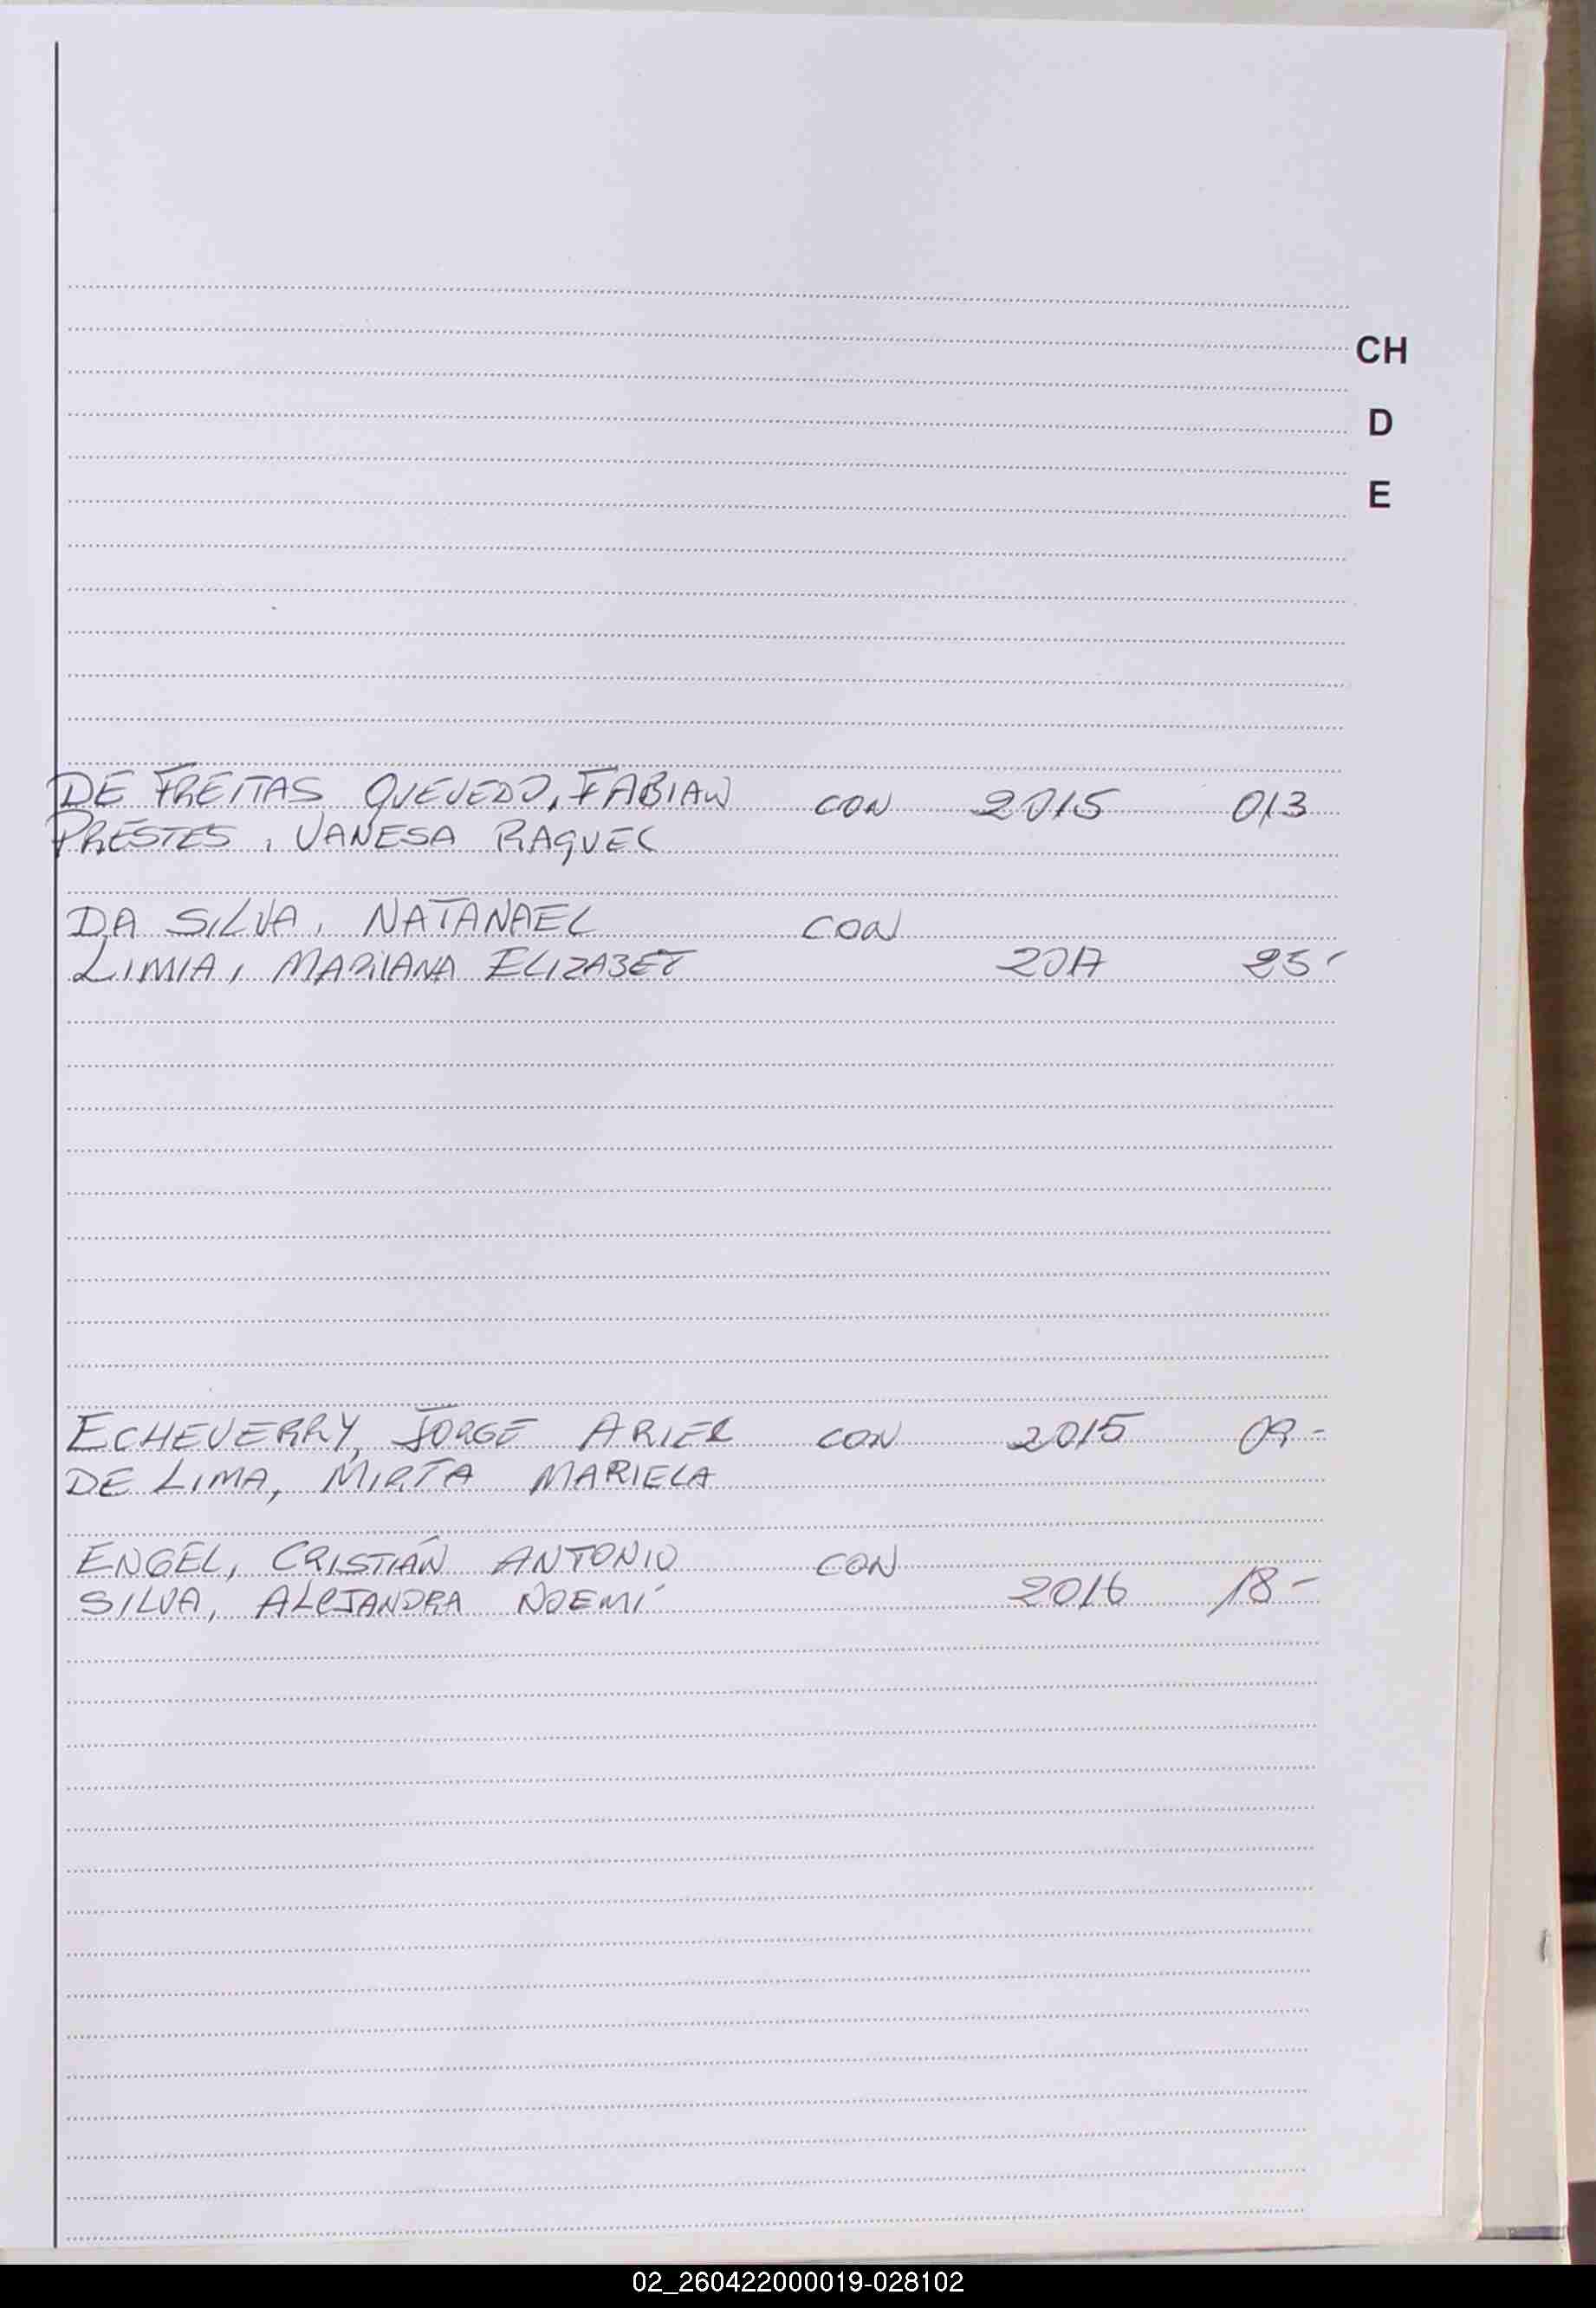 CH
D
E
DE FREITAS QUEVEDO, FABIAN CON 2015 013
PRESTES, VANESA RAQUEL
DA SILVA, NATANAEL CON
LIMIA, MARIANA ELIZABET 2017 25-
ECHEVERRY, JORGE ARIEL CON 2015 09-
DE LIMA, MIRTA MARIELA
ENGEL, CRISTIÁN ANTONIO CON
SILVA, ALEJANDRA NOEMÍ 2016 18-
02_260422000019-028102